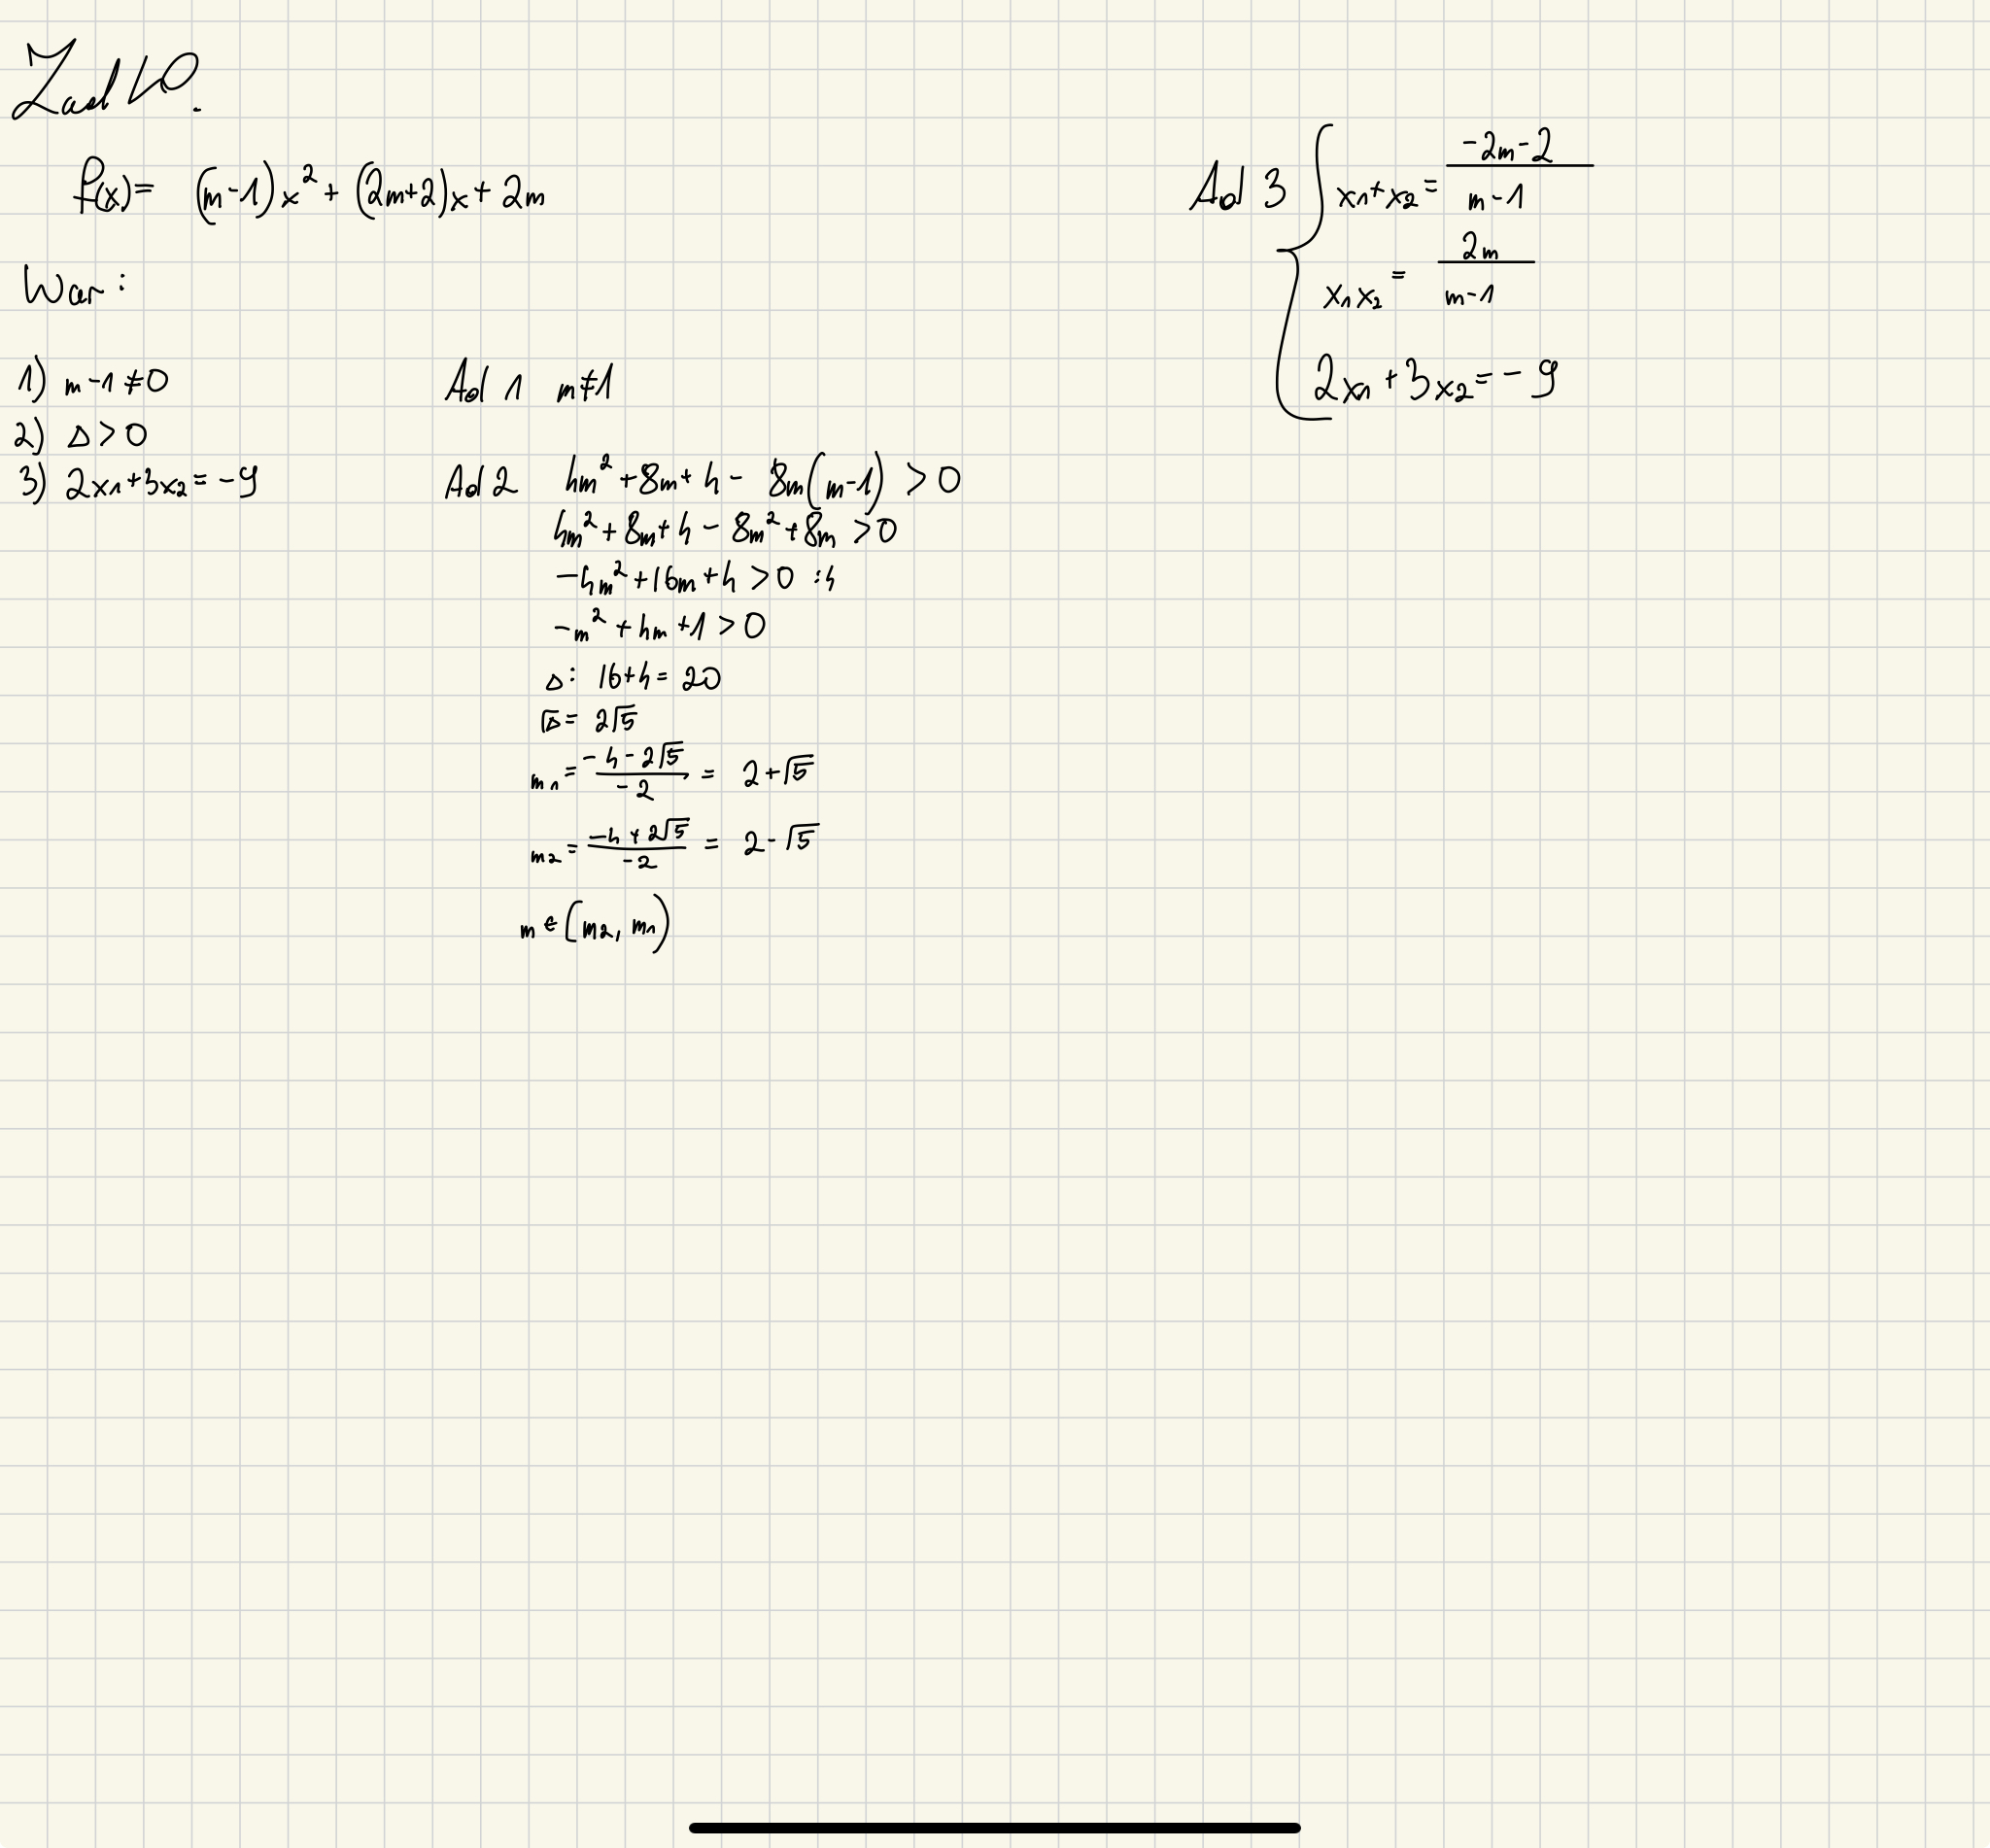 Zad 10.
f(x) = (m-1)x² + (2m+2)x + 2m
War:
1) m-1≠0
2) Δ>0
3) 2x₁+3x₂=-9
Ad 1 m≠1
Ad 2 4m²+8m+4-8m(m-1)>0
4m²+8m+4-8m²+8m>0
-4m²+16m+4>0 :4
-m²+4m+1>0
Δ: 16+4=20
√Δ = 2√5
m₁ = (-4-2√5)/(-2) = 2+√5
m₂ = (-4+2√5)/(-2) = 2-√5
m∈(m₂, m₁)
Ad 3 { x₁+x₂ = (-2m-2)/(m-1)
x₁x₂ = 2m/(m-1)
2x₁+3x₂=-9